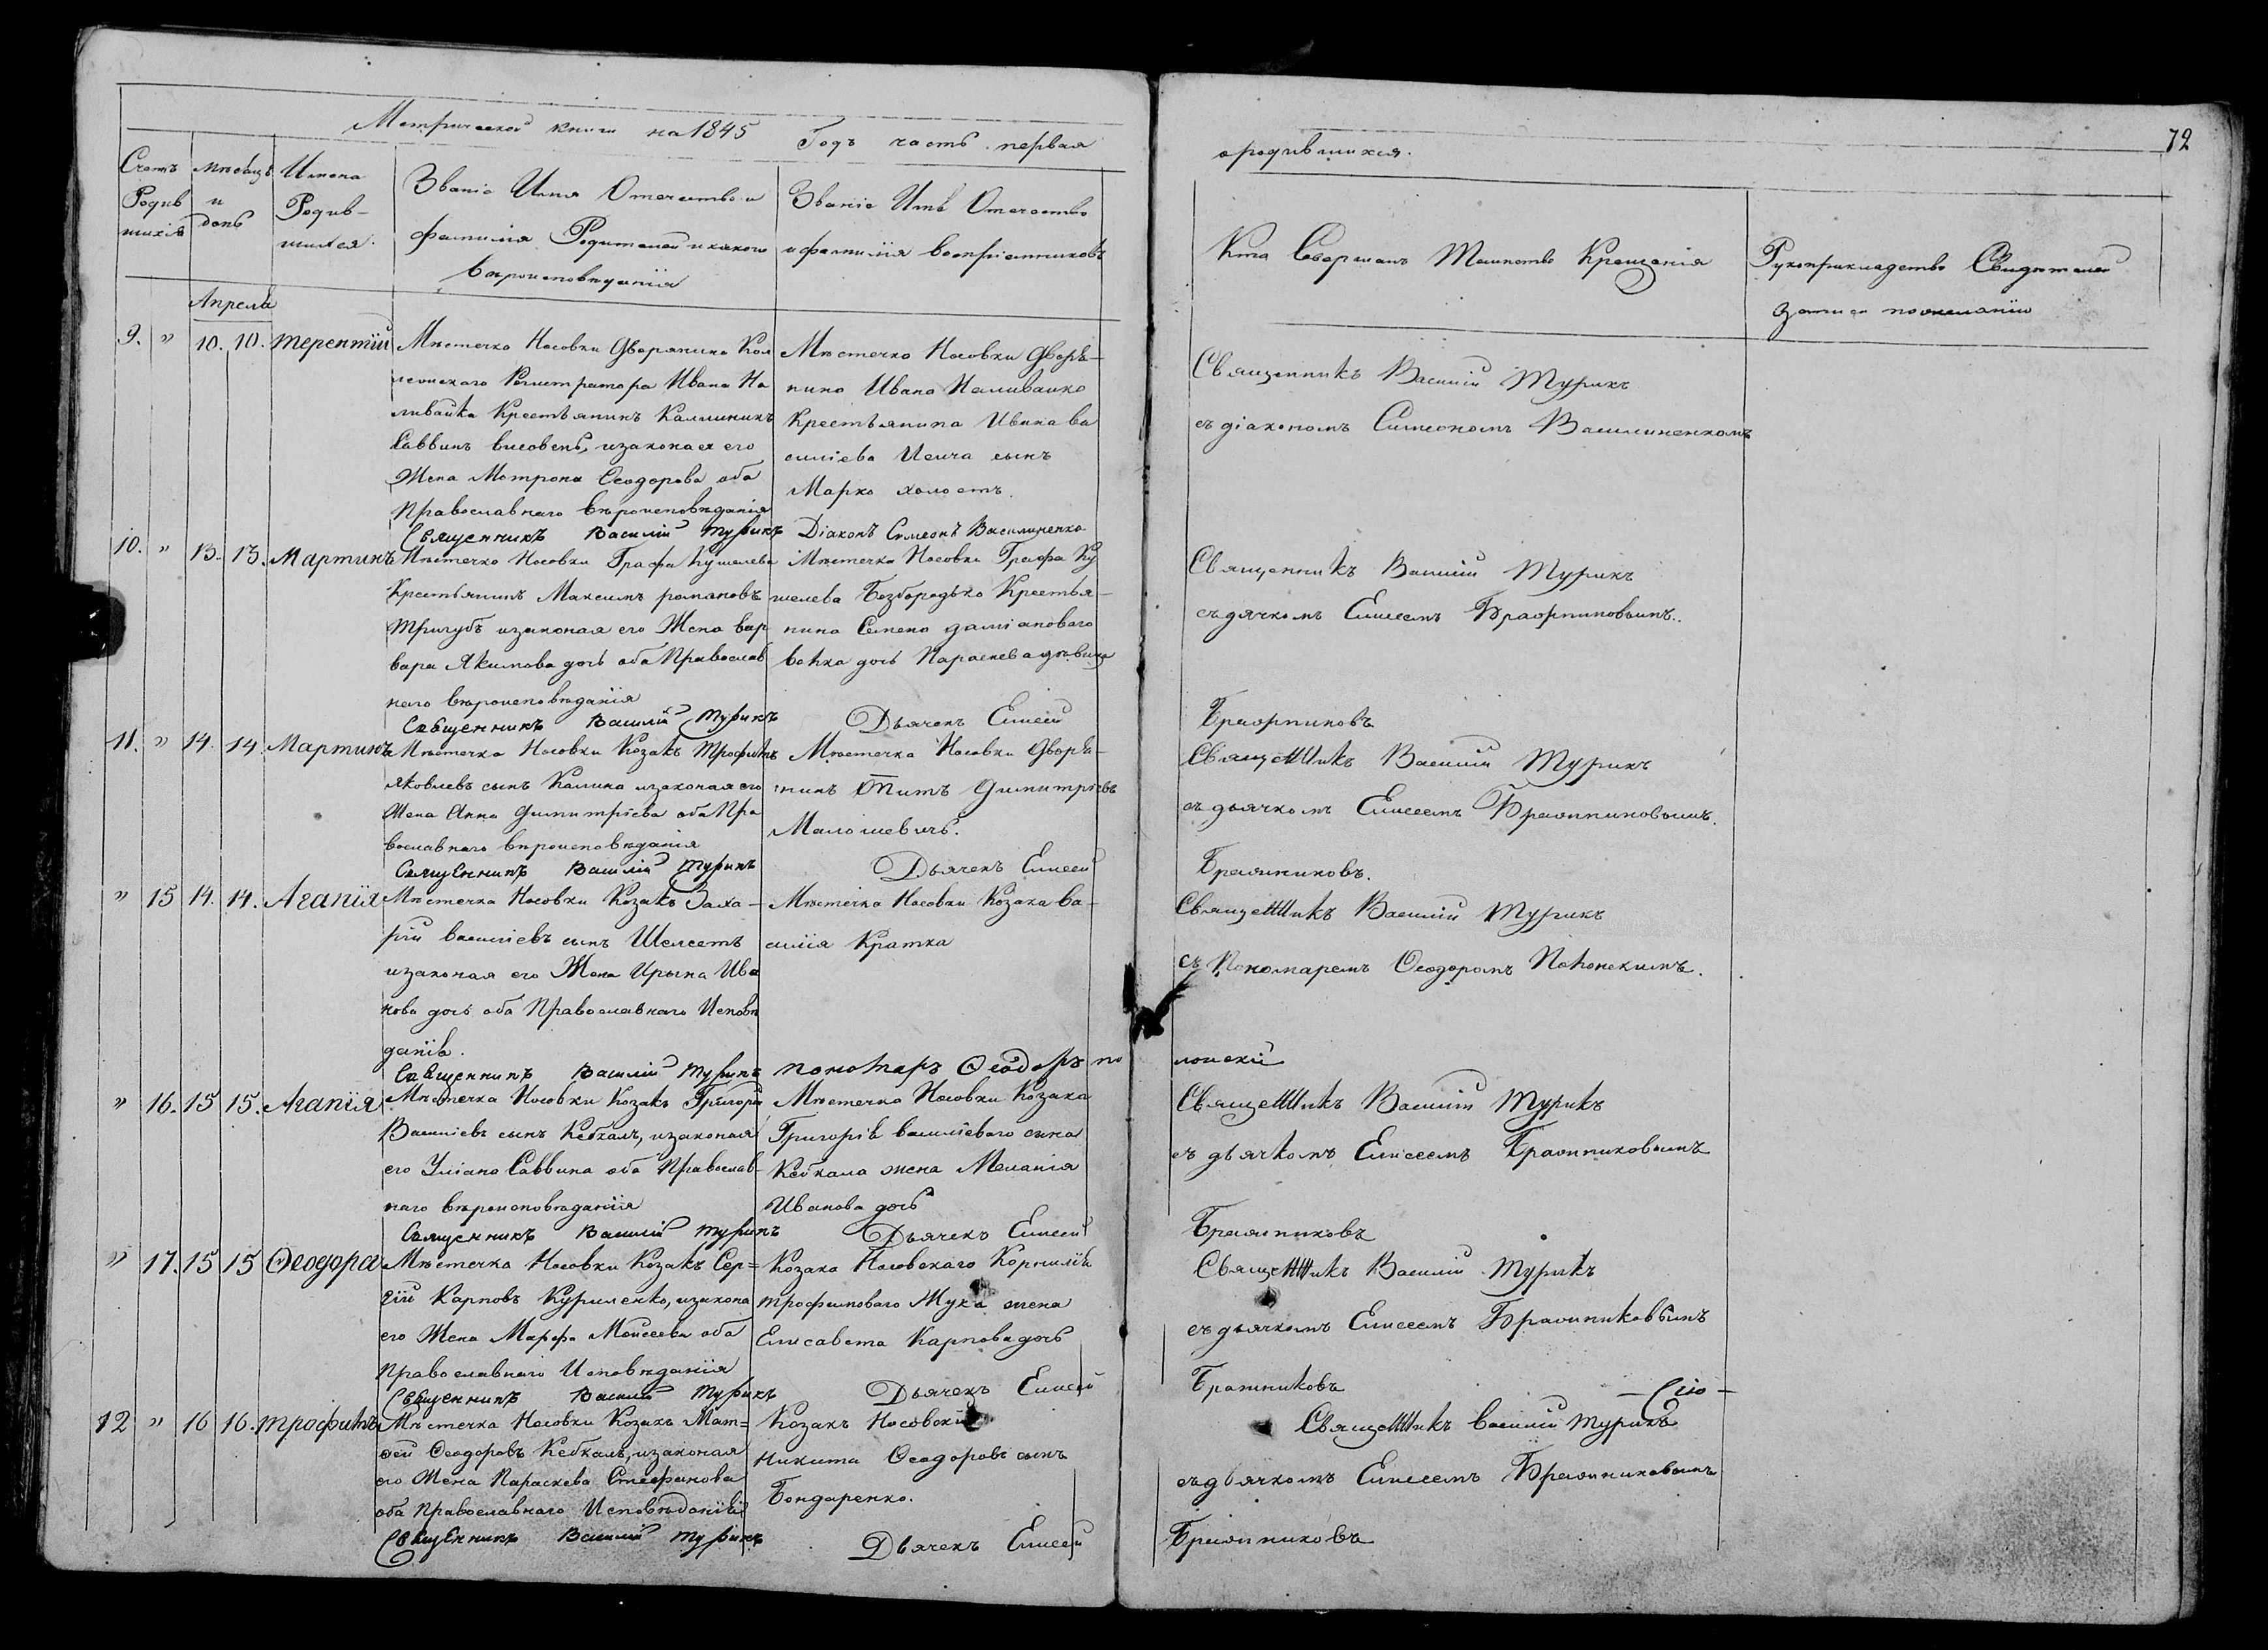 Метрической книги на 1845 Годъ часть первая
о родившихся.
72
Счетъ Родив шихся
Мѣсяцъ и день
Имена Родив- шихся.
Званіе Имя Отечество и
фамилія Родителей и какого
вѣроисповѣданія
Званіе Имя Отечество
и фамилія воспріемниковъ
Кто Совершалъ Таинство Крещенія
Рукоприкладство Свидетелей
записи по желанію
Апреля
9. " 10. 10. Терентій
Мѣстечка Носовки Дворянина Кол
лежскаго Регистратора Ивана На
ливайка Крестьянинъ Каллиникъ
Саввинъ
изаконая его
Жена Мотрона Ѳеодорова оба
Православнаго вѣроисповѣданія
Священникъ Василій Турикъ
Мѣстечка Носовки Дворя-
нина Ивана Наливайко
Крестьянина Ивана Ва
силіева сынъ
Марко холостъ.
Діаконъ Симеонъ Василиненко
Священникъ Василій Турикъ
съ діакономъ Симеономъ Василиненкомъ
10. " 13. 13. Мартинъ
Мѣстечка Носовки Графа Кушелева
Крестьянинъ Максимъ романовъ
Тригубъ изаконая его Жена Вар
вара Якимова дочь оба Православ
наго вѣроисповѣданія
Священникъ Василій Турикъ
Мѣстечка Носовки Графа Ку
шелева Безбородько Крестья-
нина Семена даміановаго
дочь Параскева девица
Дьячекъ Елисей
Священникъ Василій Турикъ
съ дячкомъ Елисеемъ
11. " 14. 14. Мартинъ
Мѣстечка Носовки Козакъ Трофимъ
Яковлевъ сынъ Калина изаконая его
Жена Анна Димитріева оба Пра
вославнаго вѣроисповѣданія
Священникъ Василій Турикъ
Мѣстечка Носовки Дворя-
нинъ Титъ Димитріевъ
Малошевичъ.
Дьячекъ Елисей
Священникъ Василій Турикъ
съ дьячкомъ Елисеемъ
" 15 14. 14. Агапія
Мѣстечка Носовки Козакъ Заха-
рій Василіевъ сынъ Шелестъ
изаконая его Жена Ирына Ива
нова дочь оба Православнаго Исповѣ
данія.
Священникъ Василій Турикъ
Мѣстечка Носовки Козака Ва-
силія Кратка
пономаръ Ѳеодоръ по
лонскій
Священникъ Василій Турикъ
съ Пономаремъ Ѳеодоромъ Полонскимъ.
" 16. 15 15. Агапія
Мѣстечка Носовки Козакъ Григорій
Василіевъ сынъ Кебкалъ, изаконая
его Уліана Саввина оба Православ-
наго вѣроисповѣданія
Священникъ Василій Турикъ
Мѣстечка Носовки Козака
Григорія василіеваго сина
Кебкала жена Меланія
Иванова дочь
Дьячекъ Елисей
Священникъ Василій Турикъ
съ дьячкомъ Елисеемъ
" 17. 15 15 Ѳеодора
Мѣстечка Носовки Козакъ Сер=
гій Карповъ Куриленко, изакона
его Жена Марфа Моисеева оба
Православнаго Исповѣданія
Священникъ Василій Турикъ
Козака Носовскаго Корнилія
трофимоваго Муха жена
Елисавета Карпова дочь
Дьячекъ Елисей
Священникъ Василій Турикъ
съ дьячкомъ Елисеемъ
12 " 16 16. Трофимъ
Мѣстечка Носовки Козакъ Мат=
ѳей Ѳеодоровъ Кебкалъ, изаконая
его Жена Параскева Стефанова
оба Православнаго Исповѣданія
Священникъ Василій Турикъ
Козакъ Носовскій
Никита Ѳеодоровъ сынъ
Бондаренко.
Дьячекъ Елисей
Священникъ Василій Турикъ
съ дьячкомъ Елисеемъ